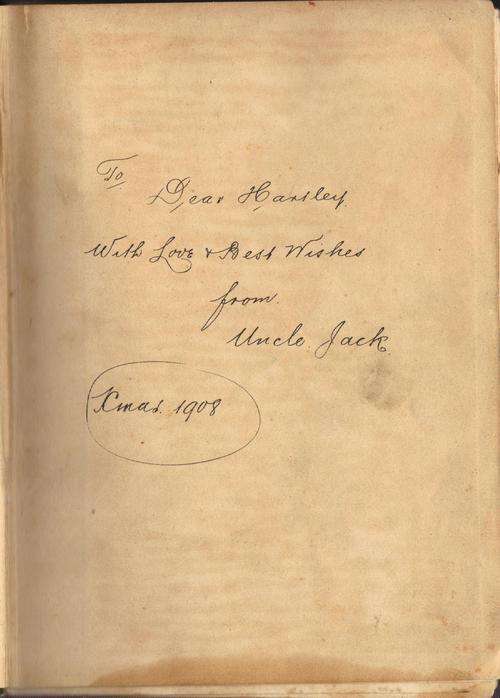 To
Dear Hartley.
With Love & Best Wishes
from.
Uncle. Jack.
Xmas. 1908